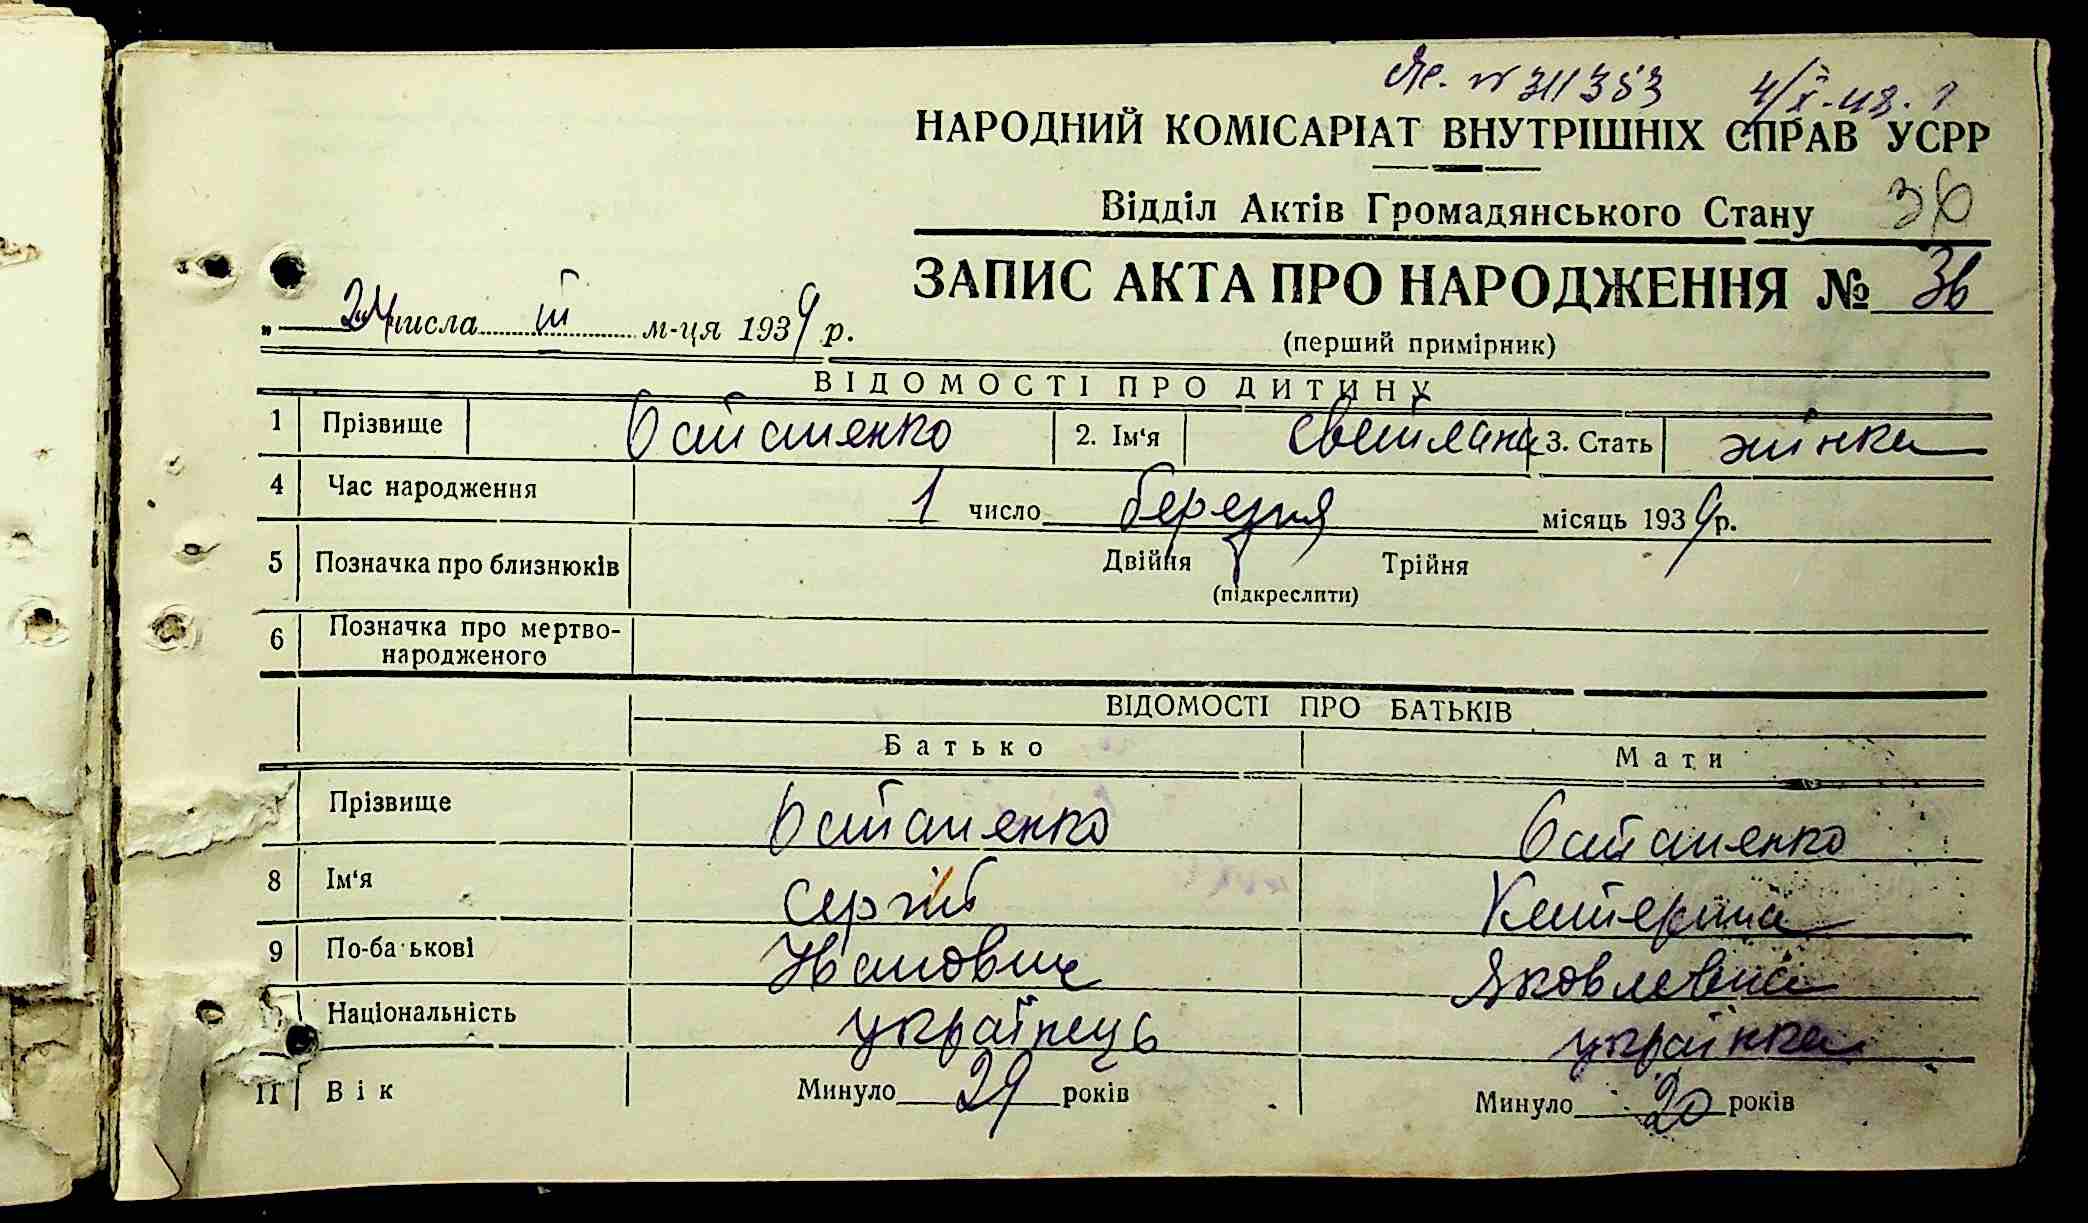 № 311353 4/X-48.
НАРОДНИЙ КОМІСАРІАТ ВНУТРІШНІХ СПРАВ УСРР
Відділ Актів Громадянського Стану 36
ЗАПИС АКТА ПРО НАРОДЖЕННЯ № 36
„ 24 числа III м-ця 1939 р.
(перший примірник)
ВІДОМОСТІ ПРО ДИТИНУ
1 Прізвище Остапенко 2. Ім'я Светлана 3. Стать жінка
4 Час народження 1 число березня місяць 1939 р.
5 Позначка про близнюків Двійня Трійня
(підкреслити)
6 Позначка про мертво-
народженого
ВІДОМОСТІ ПРО БАТЬКІВ
Батько Мати
Прізвище Остапенко Остапенко
8 Ім'я Сергій Катерина
9 По-ба ькові Иванович Яковлевна
Національність українець українка
11 Вік Минуло 29 років Минуло 20 років